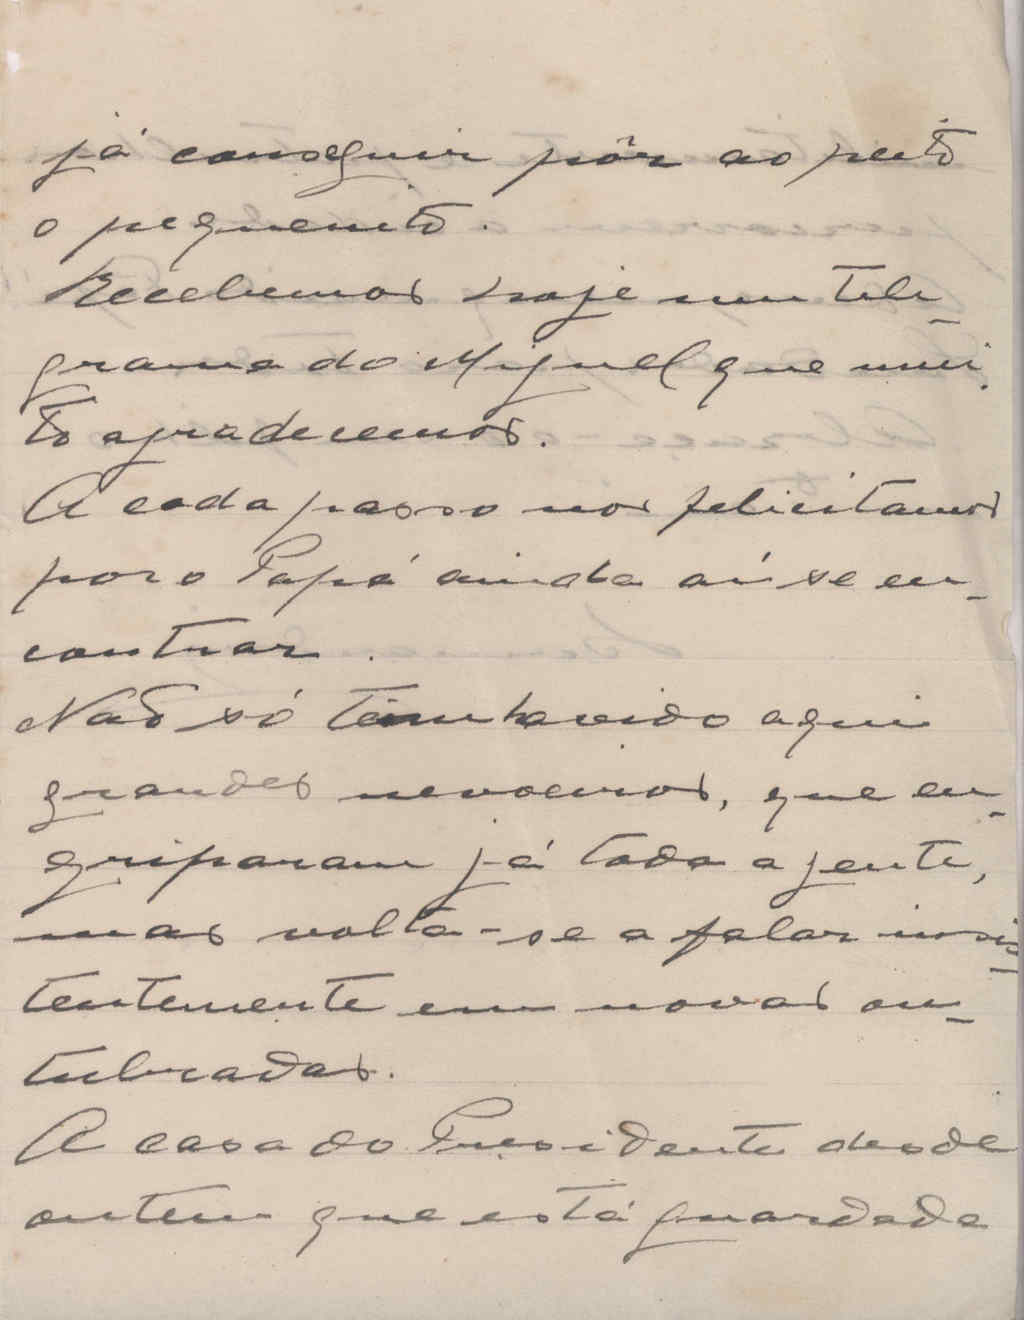 já conseguir pôr ao peito
o pequenito.
Recebemos hoje um tele-
grama do Miguel que mui-
to agradecemos.
A cada passo nos felicitamos
por o Papá ainda aí se en-
contrar.
Não só tem havido aqui
grandes nevoeiros, que en-
griparam já toda a gente,
mas volta-se a falar insis-
tentemente em novas ou-
tubradas.
A casa do Presidente desde
ontem que está guardada